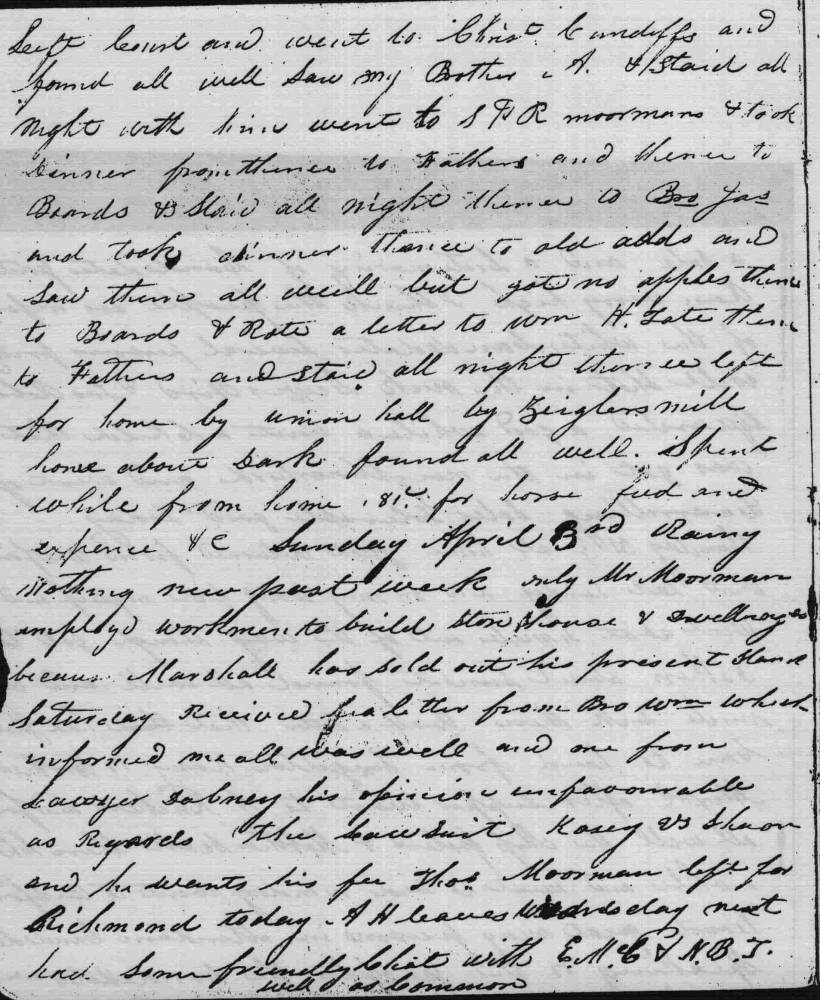 Left Court and went to Christ Cundiffs and
found all well Saw my Brother A. & Staid all
night with him went to S P R moormans & took
dinner from thence to Fathers and thence to
Boards & Staid all night thence to Bro Jas
and took dinner thence to old adds and
Saw them all weill but got no apples thence
to Boards & Rote a letter to Wm H. Tate thence
to Fathers and staid all night thence left
for home by union hall by Zeiglers mill
home about Dark found all well. Spent
while from home .81. for horse fed and
expence &C Sunday April 3rd Rainy
Nothing new past week only Mr Moorman
employd workmen to build Store house & dwelling
becaus Marshall has sold out his present
Saturday Received a letter from Bro Wm which
informed me all was well and one from
Lawyer Dabney his opinion unfavourable
as Regards the Law Suit Kasey vs
and he wants his fee Thos Moorman left for
Richmond today. A H leaves Wednesday next
had some friendly Chit with E. Mc C & N. B. T.
well as Common